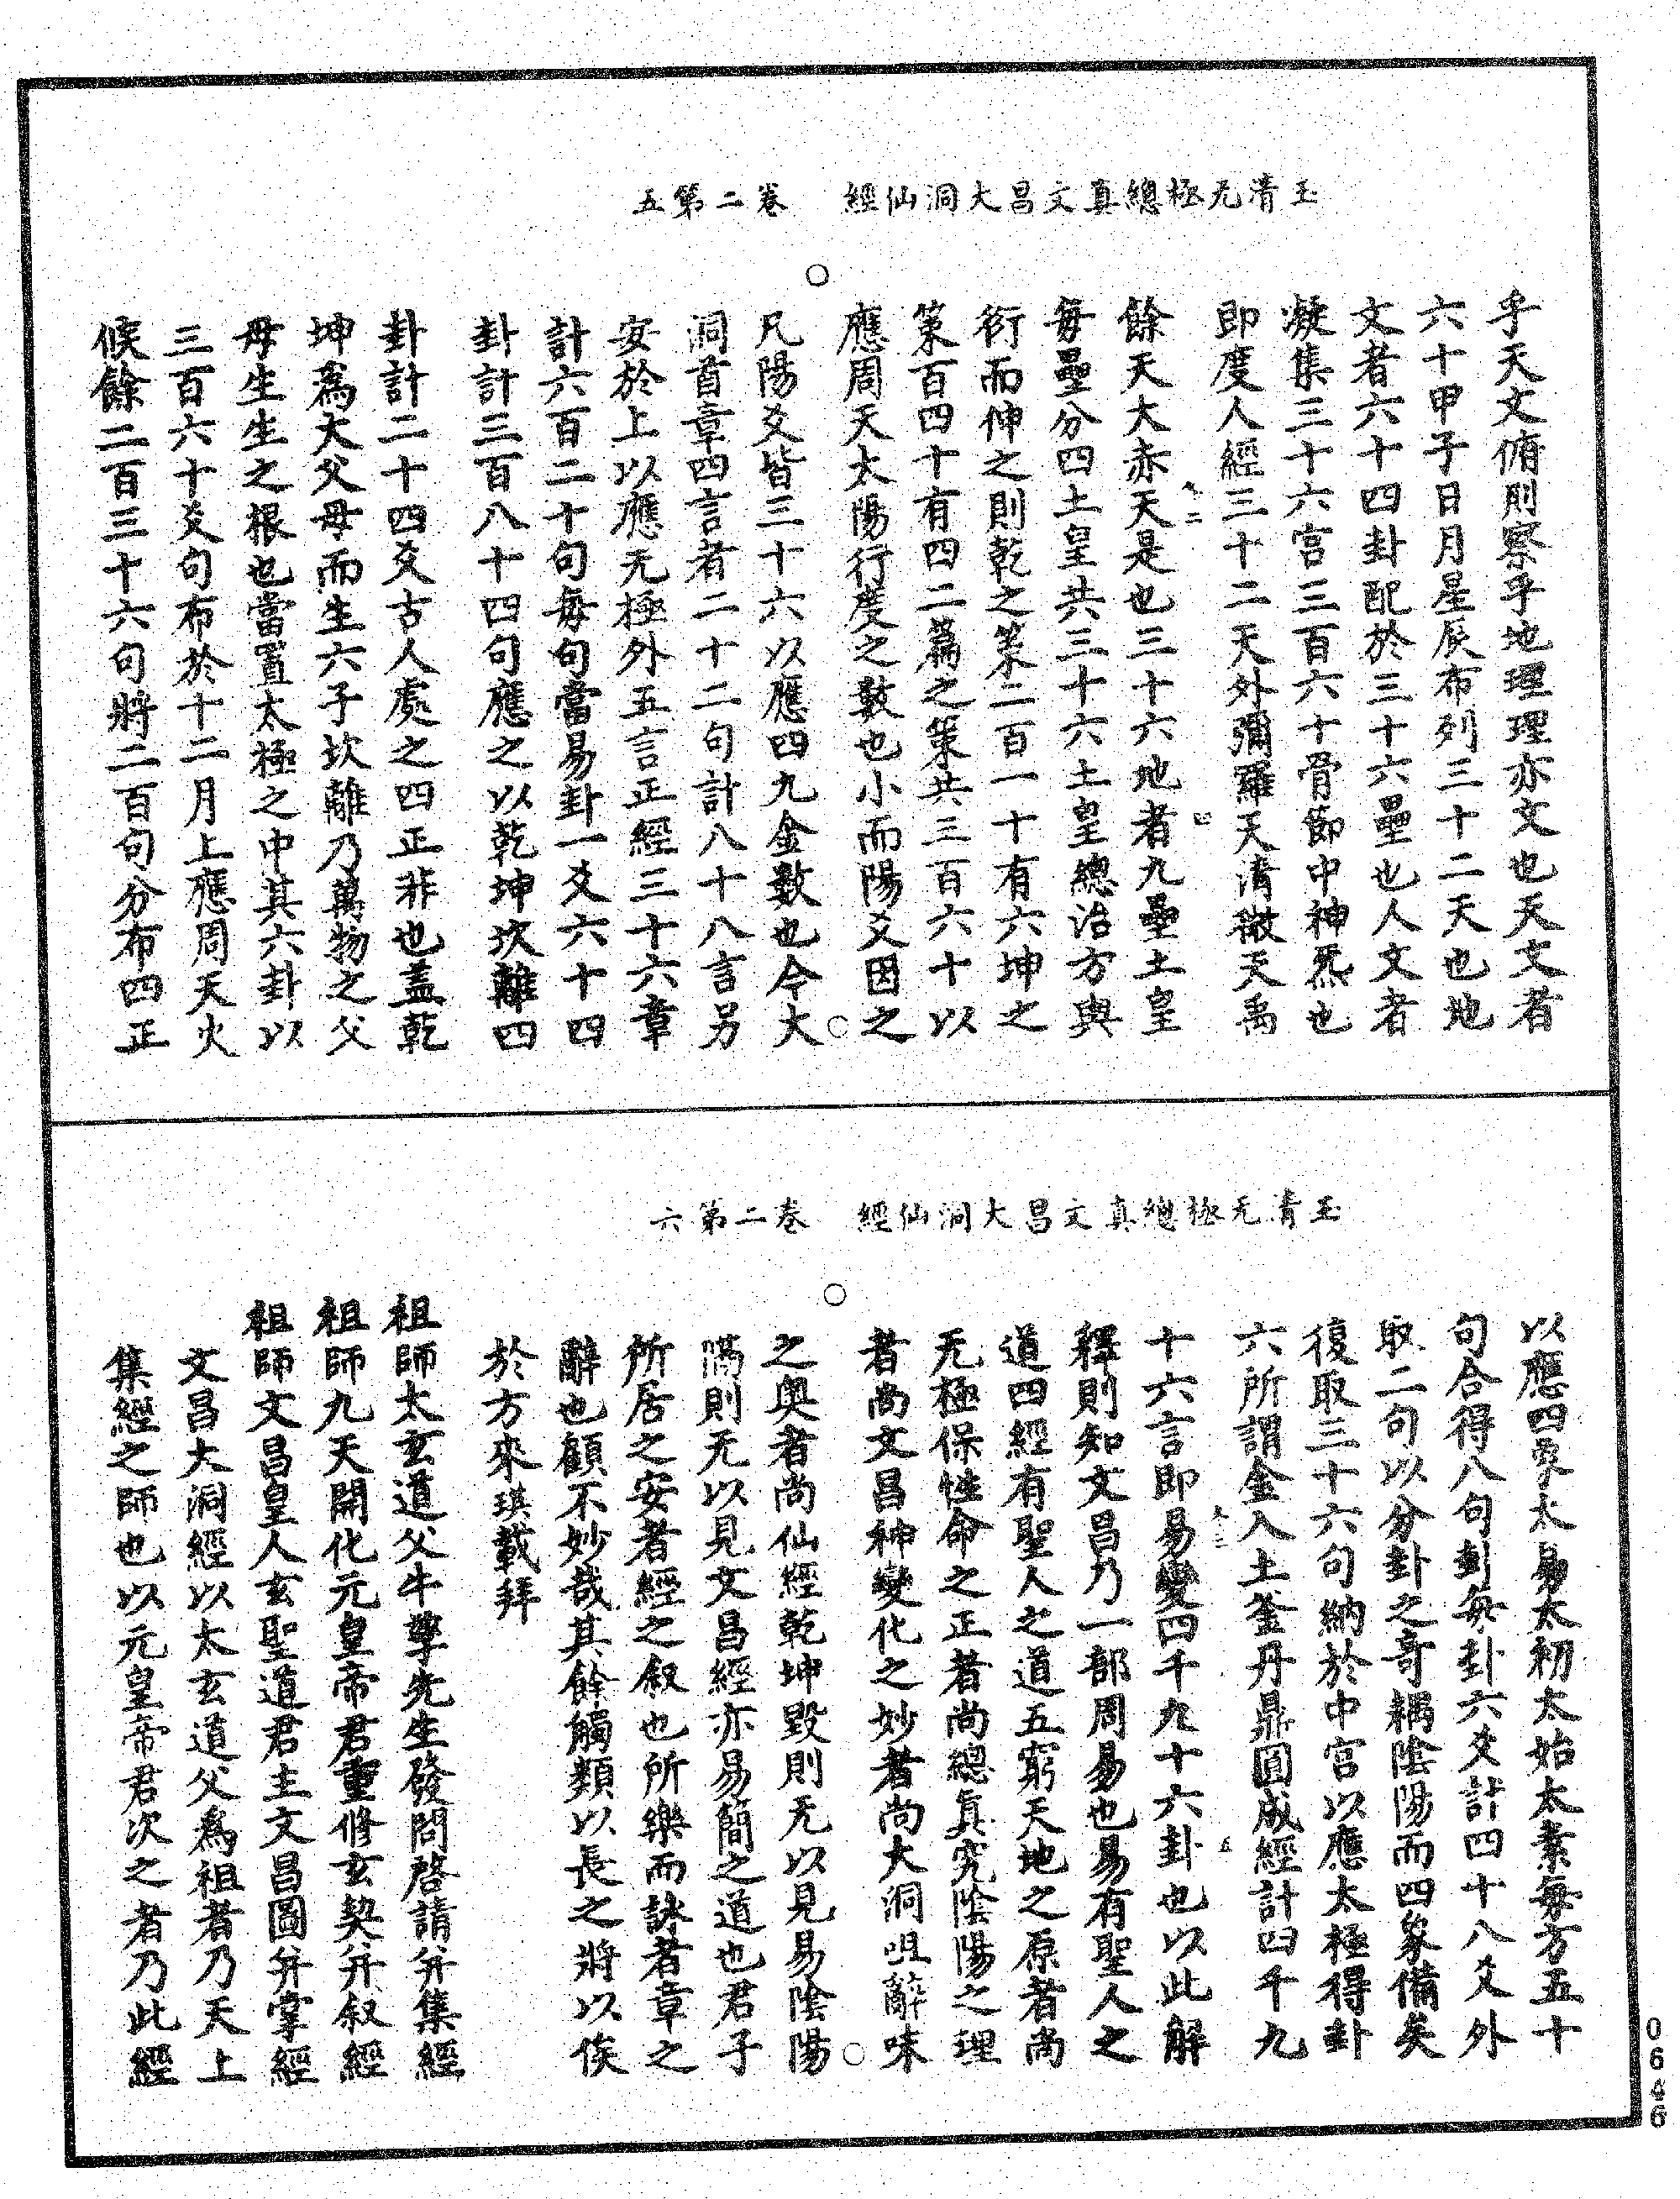 玉清无極總真文昌大洞仙經　卷二第五
乎天文俯則察乎地理理亦文也天文者
六十甲子日月星辰布列三十二天也地
文者六十四卦配於三十六壘也人文者
凝集三十六宮三百六十骨節中神炁也
即度人經三十二天外彌羅天清微天禹
餘天大赤天是也三十六地者九壘土皇
每壘分四土皇共三十六土皇總治方輿
衍而伸之則乾之策二百一十有六坤之
策百四十有四二篇之策共三百六十以
應周天太陽行度之數也小而陽爻因之
凡陽爻皆三十六以應四九金數也今大
洞首章四言者二十二句計八十八言另
安於上以應无極外五言正經三十六章
計六百二十句每句當易卦一爻六十四
卦計三百八十四句應之以乾坤坎離四
卦計二十四爻古人處之四正非也蓋乾
坤為大父母而生六子坎離乃萬物之父
母生生之根也當置太極之中其六卦以
三百六十爻句布於十二月上應周天火
候餘二百三十六句將二百句分布四正
玉清无極總真文昌大洞仙經　卷二第六
以應四象太易太初太始太素每方五十
句合得八句卦每卦六爻計四十八爻外
取二句以分卦之奇耦陰陽而四象備矣
復取三十六句納於中宮以應太極得卦
六所謂金入土釜丹鼎圓成經計四千九
十六言即易變四千九十六卦也以此解
釋則知文昌乃一部周易也易有聖人之
道四經有聖人之道五窮天地之原者尚
无極保性命之正者尚總真究陰陽之理
者尚文昌神變化之妙者尚大洞咀辭味
之奧者尚仙經乾坤毀則无以見易陰陽
隔則无以見文昌經亦易簡之道也君子
所居之安者經之叙也所樂而詠者章之
辭也顧不妙哉其餘觸類以長之將以俟
於方來琪載拜
祖師太玄道父牛犂先生發問啓請并集經
祖師九天開化元皇帝君重修玄契并叙經
祖師文昌皇人玄聖道君主文昌圖并掌經
文昌大洞經以太玄道父為祖者乃天上
集經之師也以元皇帝君次之者乃此經
0646